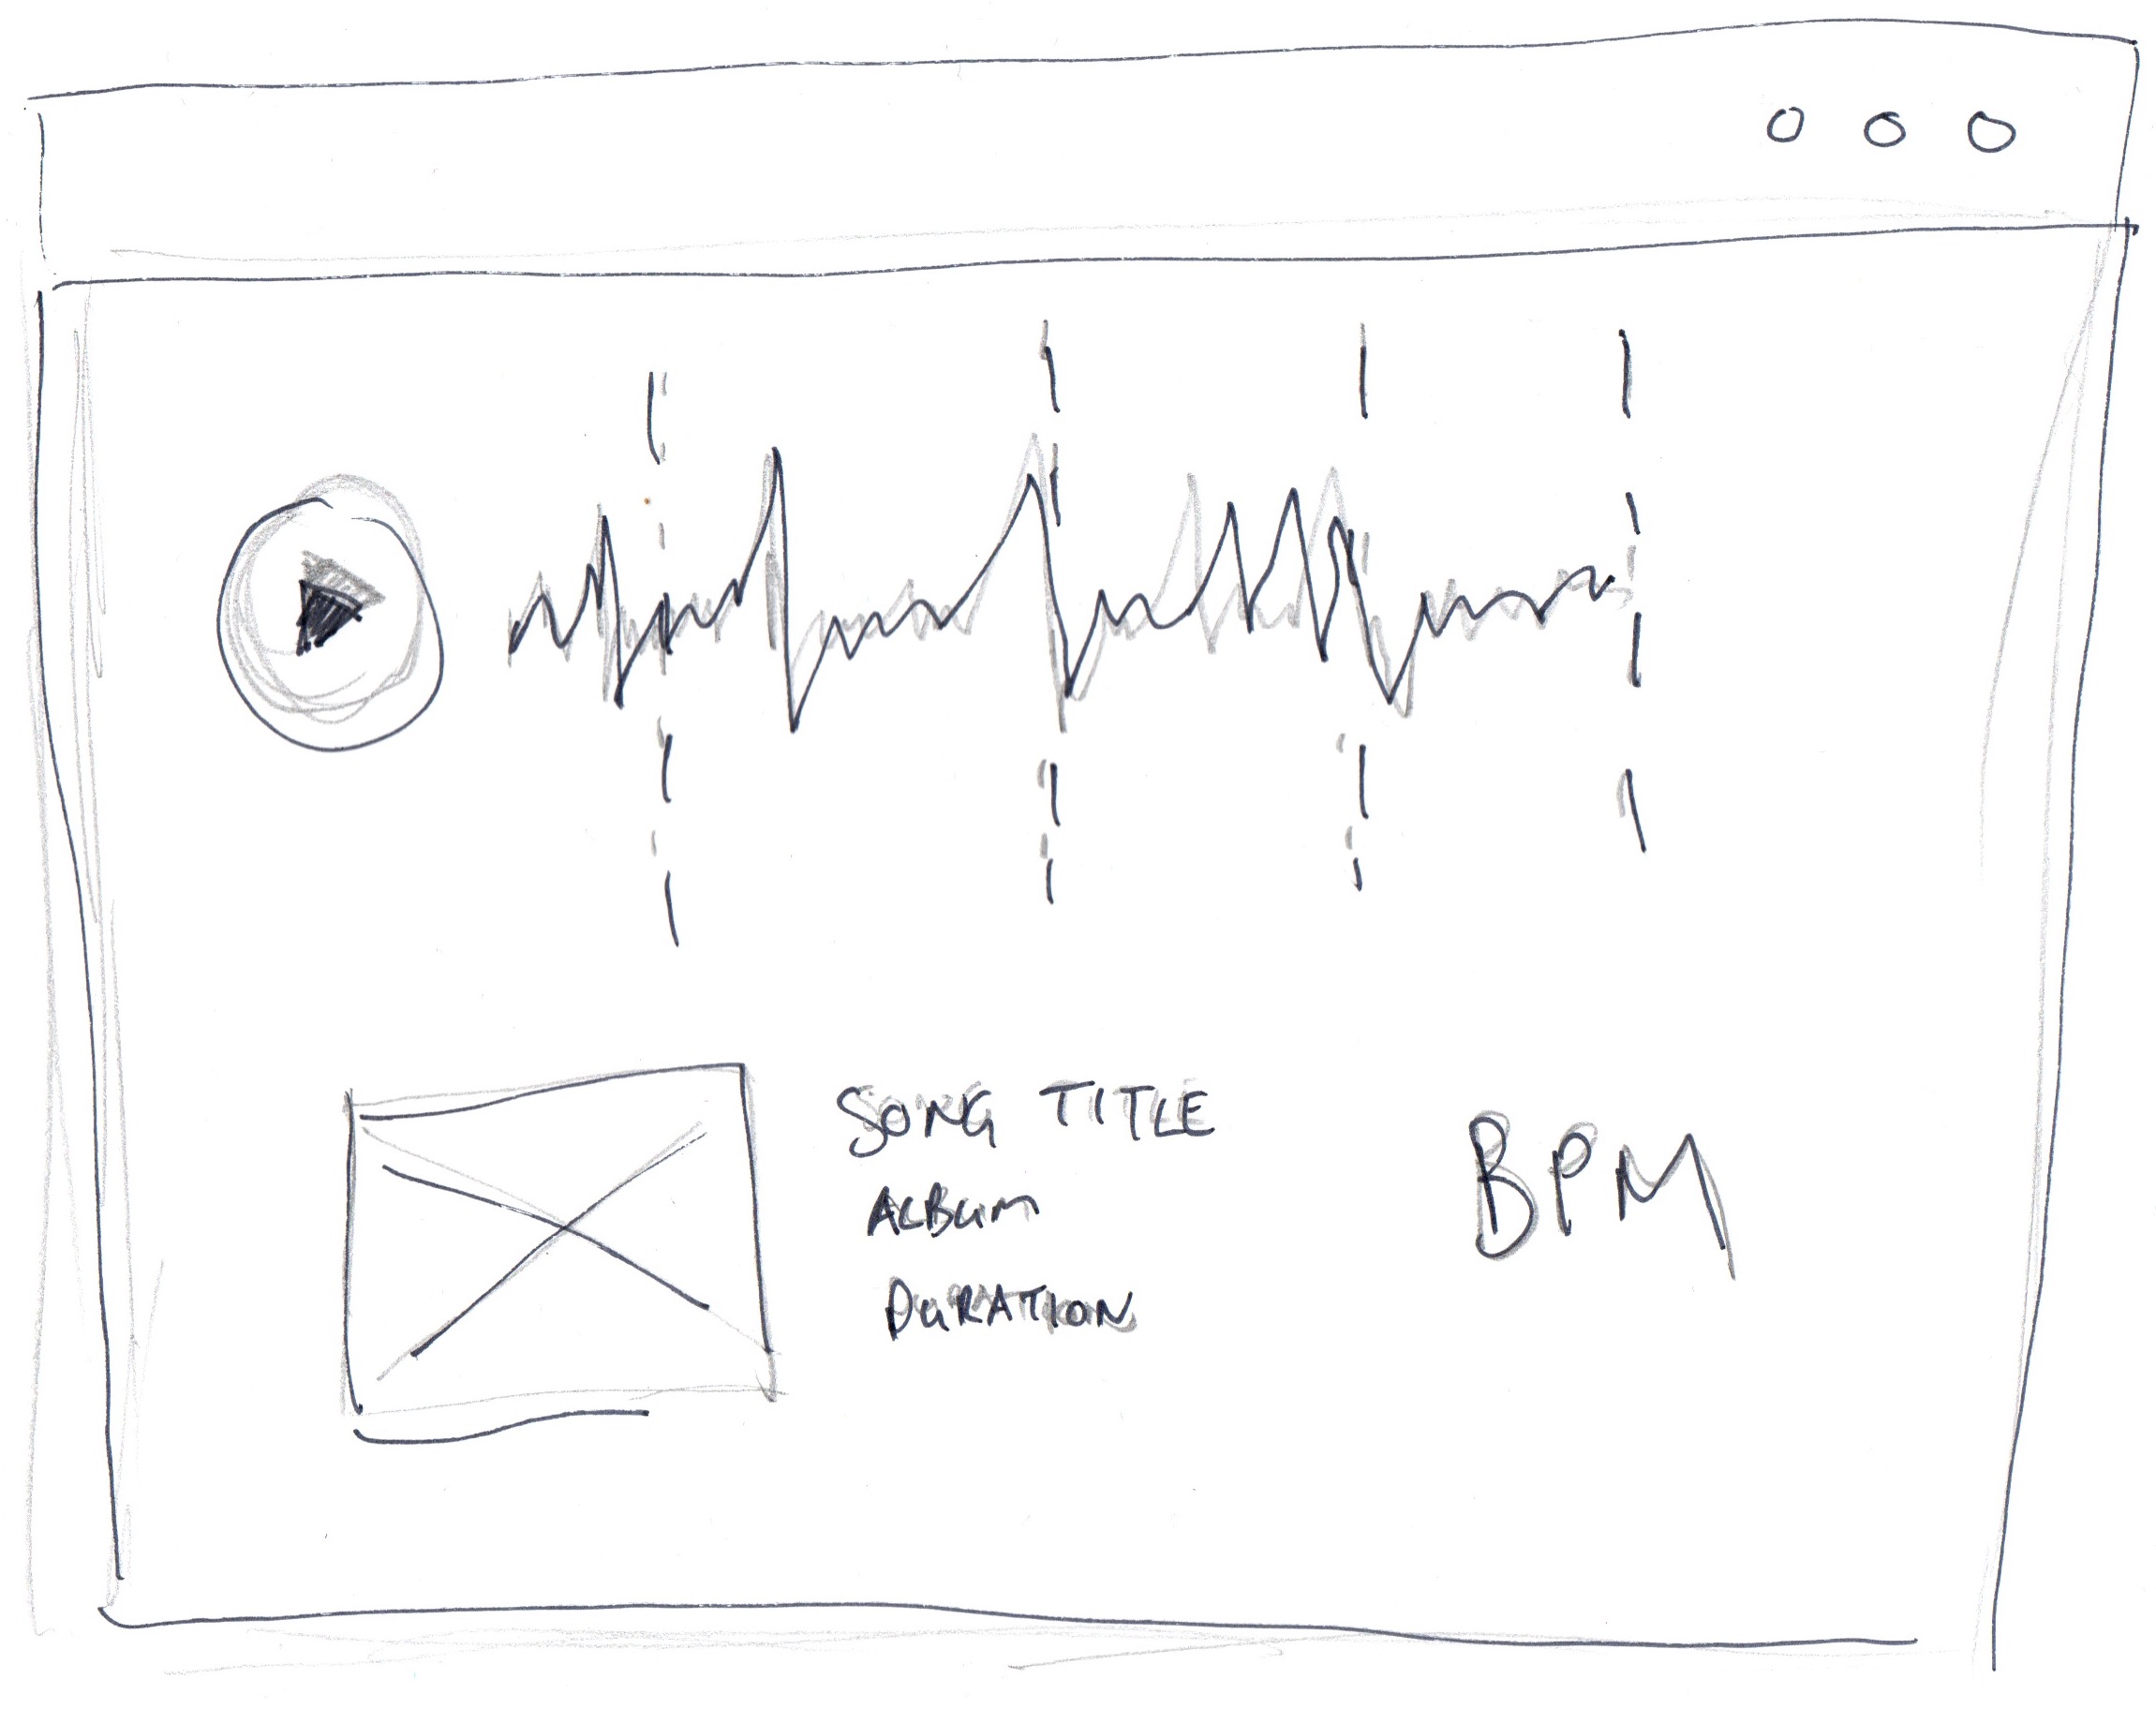 SONG TITLE
ALBUM
DURATION
BPM